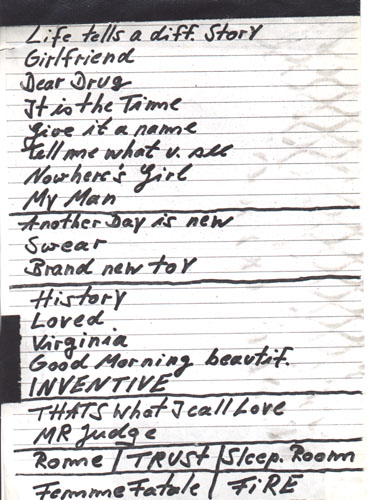 Life tells a diff. Story
Girlfriend
Dear Drug
It is the Time
give it a name
tell me what u. see
Nowhere's Girl
My Man
Another Day is new
Swear
Brand new toy
History
Loved
Virginia
Good Morning beautif.
INVENTIVE
THATS What I call Love
MR Judge
Rome | TRUST | Sleep. Room
Femme Fatale | FiRE